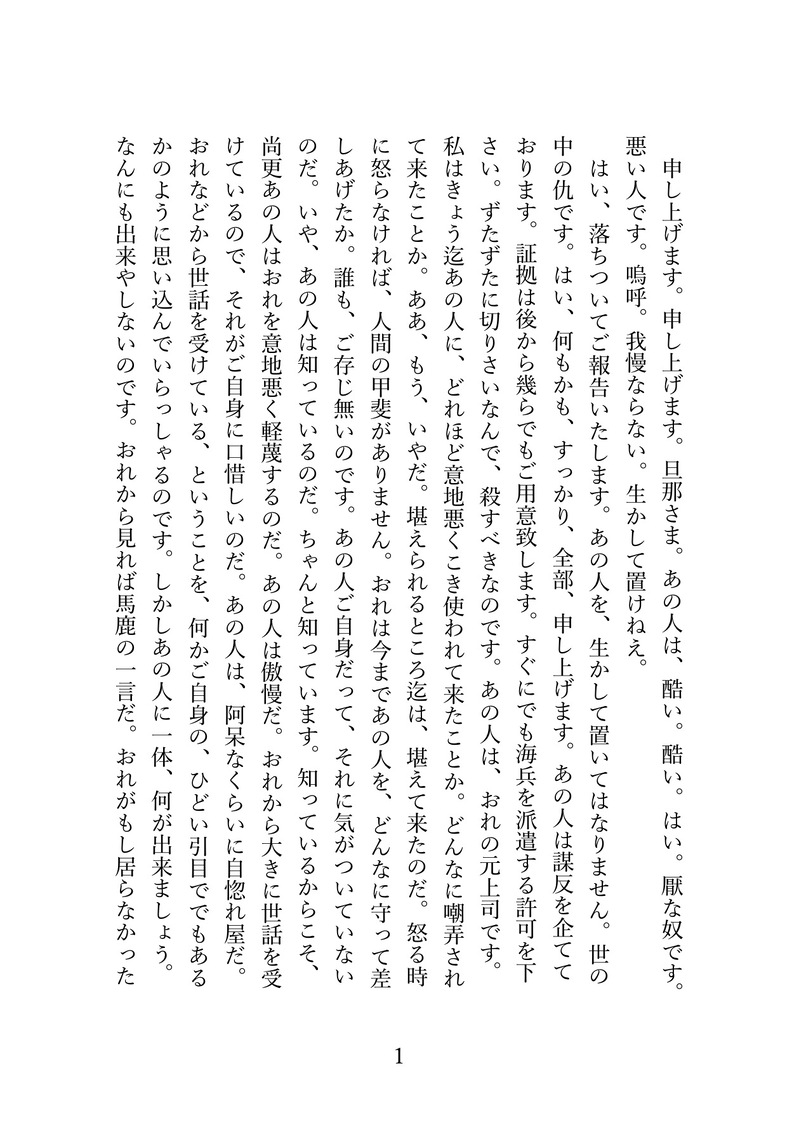 申し上げます。申し上げます。旦那さま。あの人は、酷い。酷い。はい。厭な奴です。
悪い人です。嗚呼。我慢ならない。生かして置けねえ。
はい、落ちついてご報告いたします。あの人を、生かして置いてはなりません。世の
中の仇です。はい、何もかも、すっかり、全部、申し上げます。あの人は謀反を企てて
おります。証拠は後から幾らでもご用意致します。すぐにでも海兵を派遣する許可を下
さい。ずたずたに切りさいなんで、殺すべきなのです。あの人は、おれの元上司です。
私はきょう迄あの人に、どれほど意地悪くこき使われて来たことか。どんなに嘲弄され
て来たことか。ああ、もう、いやだ。堪えられるところ迄は、堪えて来たのだ。怒る時
に怒らなければ、人間の甲斐がありません。おれは今まであの人を、どんなに守って差
しあげたか。誰も、ご存じ無いのです。あの人ご自身だって、それに気がついていない
のだ。いや、あの人は知っているのだ。ちゃんと知っています。知っているからこそ、
尚更あの人はおれを意地悪く軽蔑するのだ。あの人は傲慢だ。おれから大きに世話を受
けているので、それがご自身に口惜しいのだ。あの人は、阿呆なくらいに自惚れ屋だ。
おれなどから世話を受けている、ということを、何かご自身の、ひどい引目ででもある
かのように思い込んでいらっしゃるのです。しかしあの人に一体、何が出来ましょう。
なんにも出来やしないのです。おれから見れば馬鹿の一言だ。おれがもし居らなかった
1